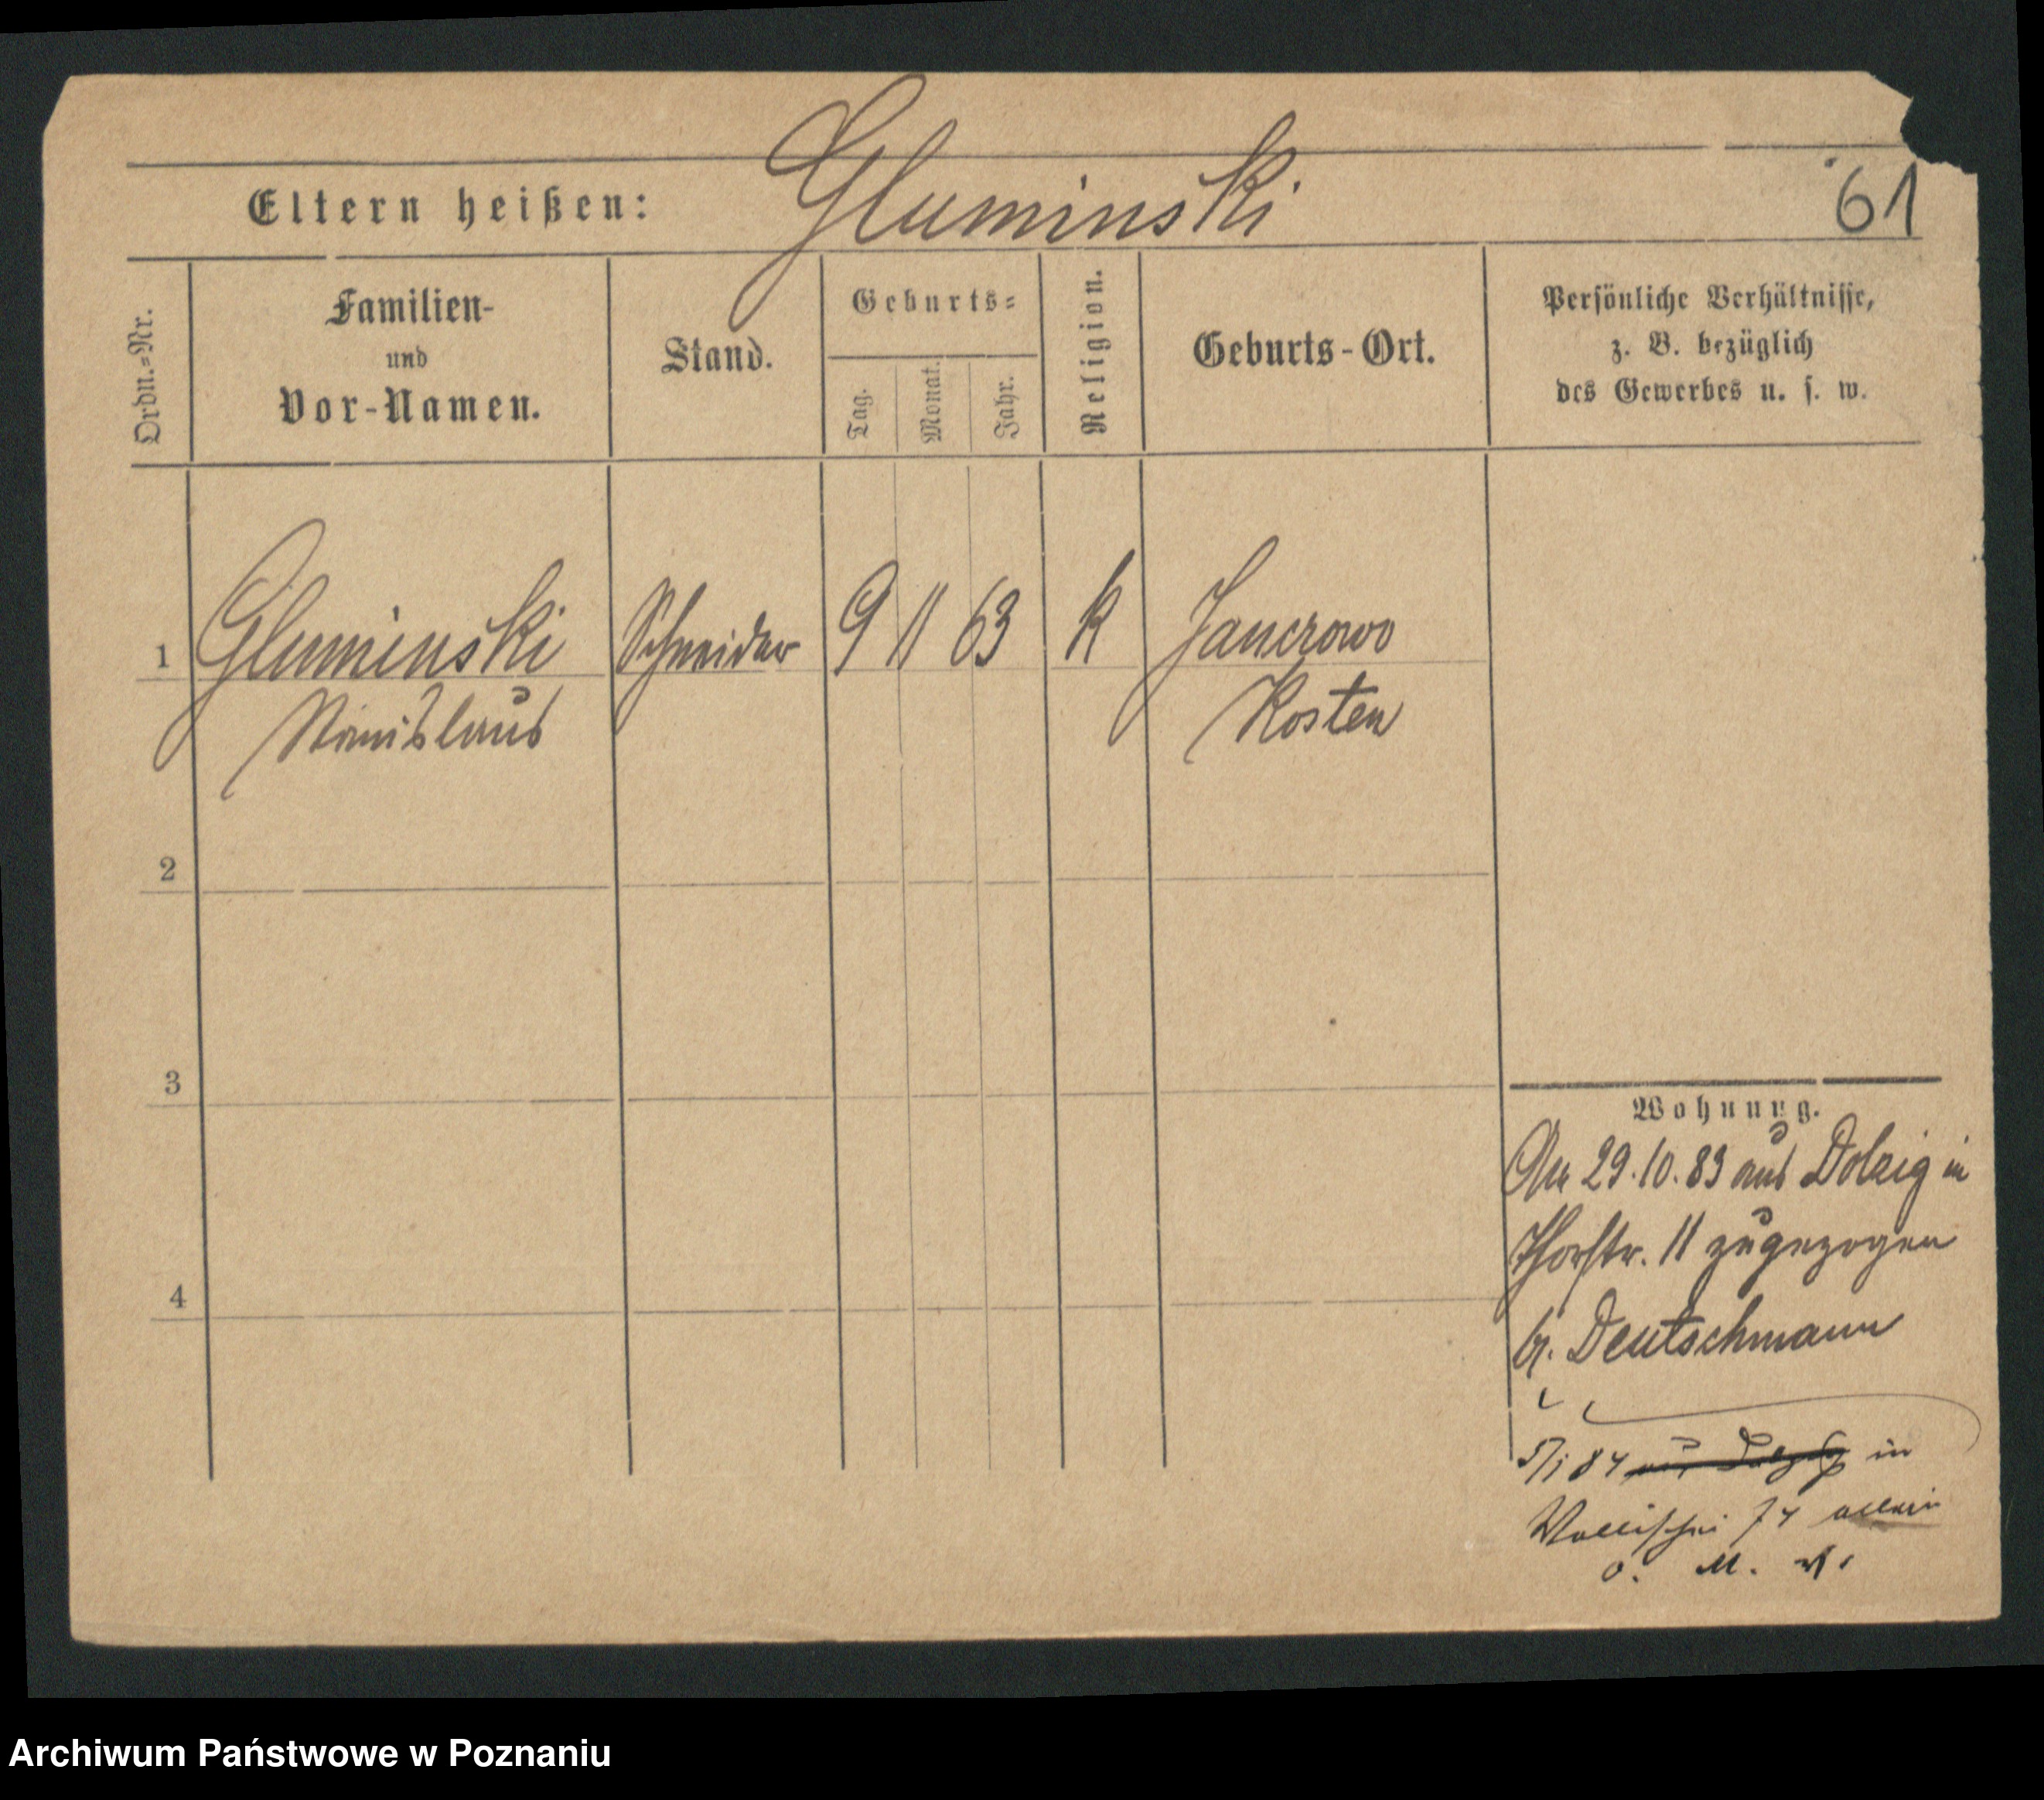 Eltern heißen: Gluminski 61
Ordn.=Nr.
Familien-
und
Vor-Namen.
Stand.
Geburts=
Tag.
Monat.
Jahr.
Religion.
Geburts-Ort.
Persönliche Verhältnisse,
z. B. bezüglich
des Gewerbes u. s. w.
1 Gluminski Schneider 9 11 63 K Jancrowo
Stanislaus Kosten
2
3
4
Wohnung.
An 29.10.83 aus Dolzig in
Thorstr. 11 zugezogen
b. Deutschmann
5/1 84 aus Dolzig in
Wallischei 74 allein
o. M.
Archiwum Państwowe w Poznaniu